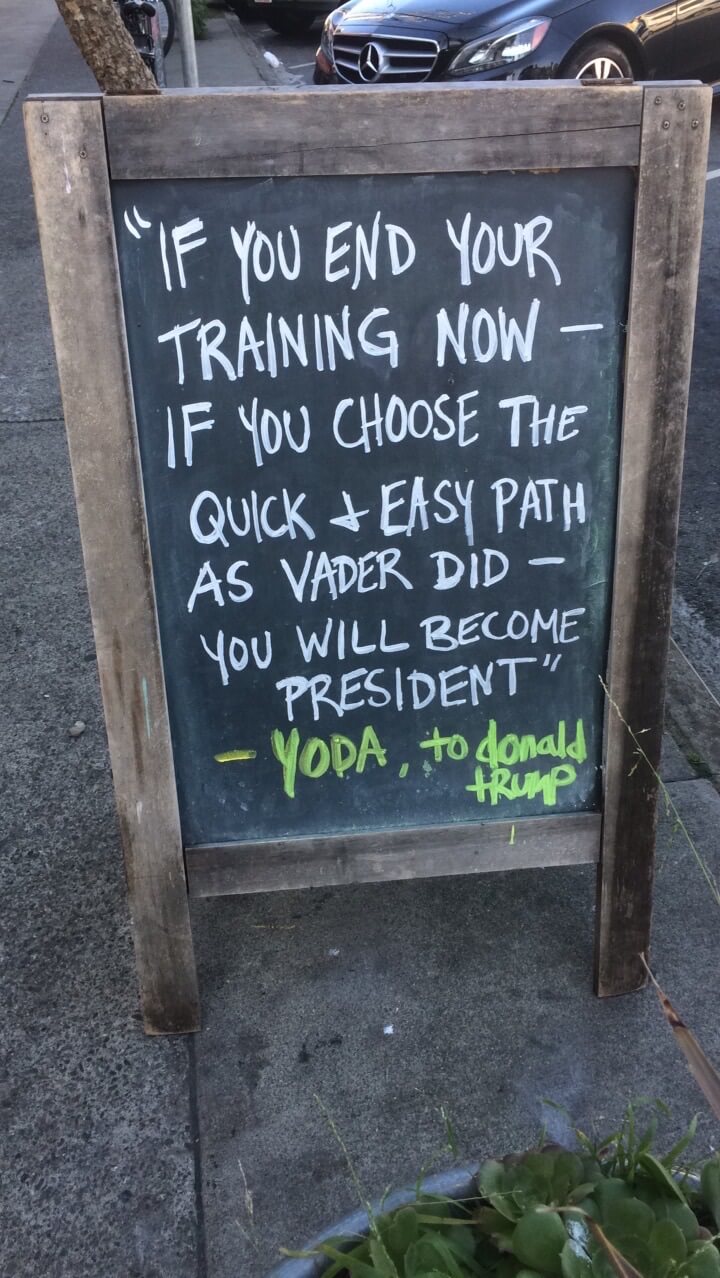 "IF YOU END YOUR
TRAINING NOW —
IF YOU CHOOSE THE
QUICK & EASY PATH
AS VADER DID —
YOU WILL BECOME
PRESIDENT"
- YODA, to donald
tRUMP